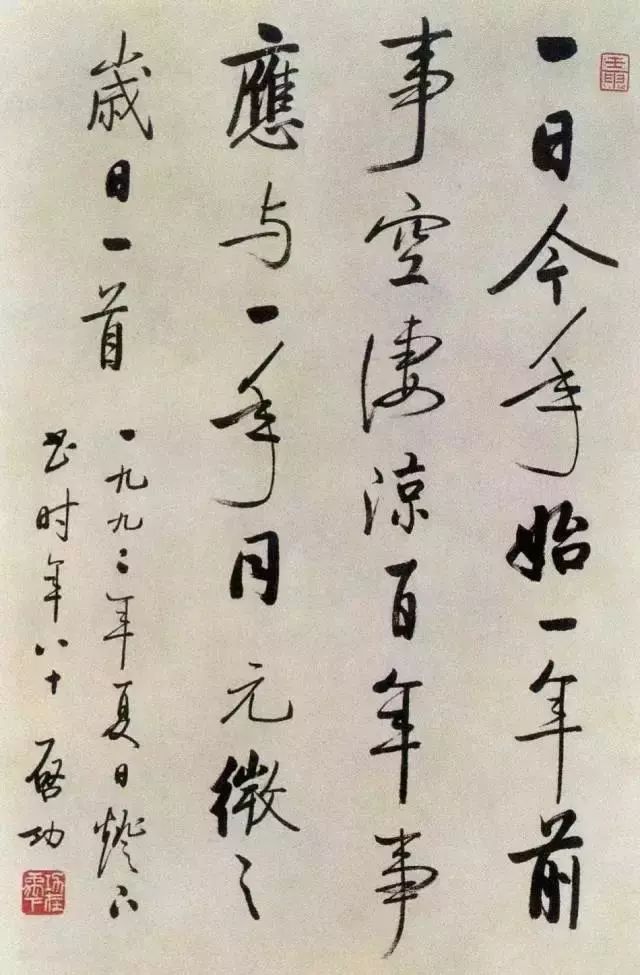 一日今年始一年前
事空凄凉百年事
應与一年同元微之
歲日一首
一九九二年夏日燈下
书时年八十启功